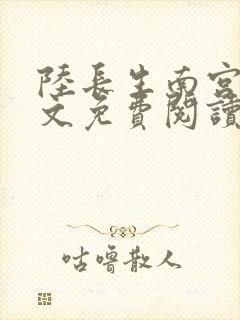 陸長生南宮
文免費閱讀
咕嚕散人